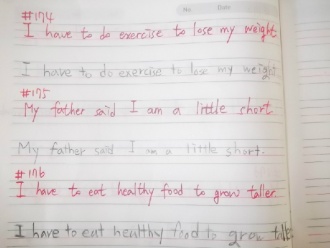 No. Date
#174
I have to do exercise to lose my weight
I have to do exercise to lose my weight
#175
My father said I am a little short
My father said I am a little short.
#176
I have to eat healthy food to grow taller.
I have to eat healthy food to grow